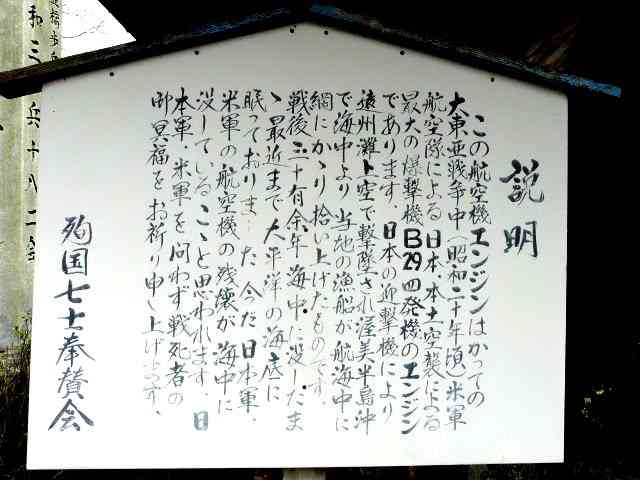 説明
この航空機エンジンはかっての
大東亜戦争中(昭和二十年頃)米軍
航空隊による日本本土空襲による
最大の爆撃機B29四発機のエンジン
であります。日本の迎撃機により
遠州灘上空で撃墜され渥美半島沖
で海中より当地の漁船が航海中に
網にかゝり拾い上げたものです。
戦後三十有余年海中に没したまゝ
最近まで太平洋の海底に
眠っておりました今だ日本軍、
米軍の航空機の残壊が海中に
没していることゝ思われます。日
本軍、米軍を問わず戦死者の
御冥福をお祈り申し上げます。
殉国七士奉賛会
和三
兵十八二会